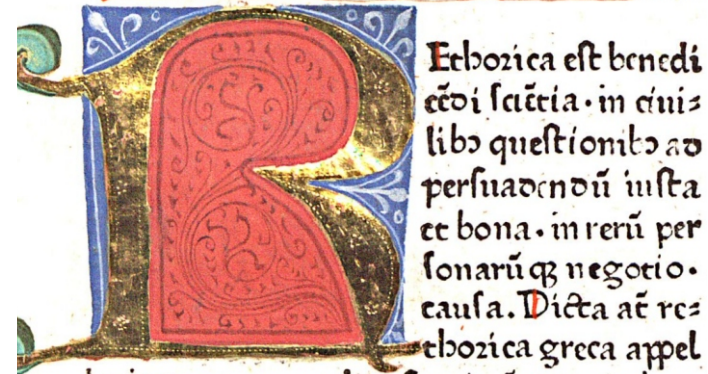 REthorica est benedi
cēdi sciētia. in ciui=
libꝫ questionibꝫ ad
persuadendū iusta
et bona. in rerū per
sonarūqꝫ negotio.
causa. Dicta at̄ re=
thorica greca appel